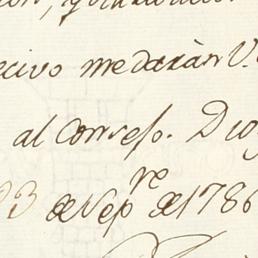 ecivo me daràn V.
al Consejo. Dio
23 de Sep.re de 1786